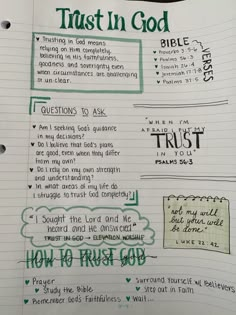 Trust In God
♥ Trusting in God means
relying on Him completely,
believing in His faithfulness,
goodness and sovereignty even
when circumstances are challenging
or unclear.
BIBLE
VERSES
♥ Proverbs 3:5-6
♥ Psalms 56:3
♥ Isaiah 26:4
♥ Jeremiah 17:7-8
♥ Psalms 37:5
QUESTIONS TO ASK
♥ Am I seeking God's guidance
in my decisions?
♥ Do I believe that God's plans
are good, even when they differ
from my own?
♥ Do I rely on my own strength
and understanding?
♥ In what areas of my life do
I struggle to trust God completely?
"WHEN I'M
AFRAID I PUT MY
TRUST
IN YOU"
PSALMS 56:3
"I Sought the Lord and He
heard and He answered"
TRUST IN GOD → ELEVATION WORSHIP
"not my will
but your will
be done."
LUKE 22:42
HOW TO TRUST GOD
♥ Prayer
♥ Study the Bible
♥ Remember God's Faithfulness
♥ Surround Yourself w/ Believers
♥ Step out in Faith
♥ Wait...